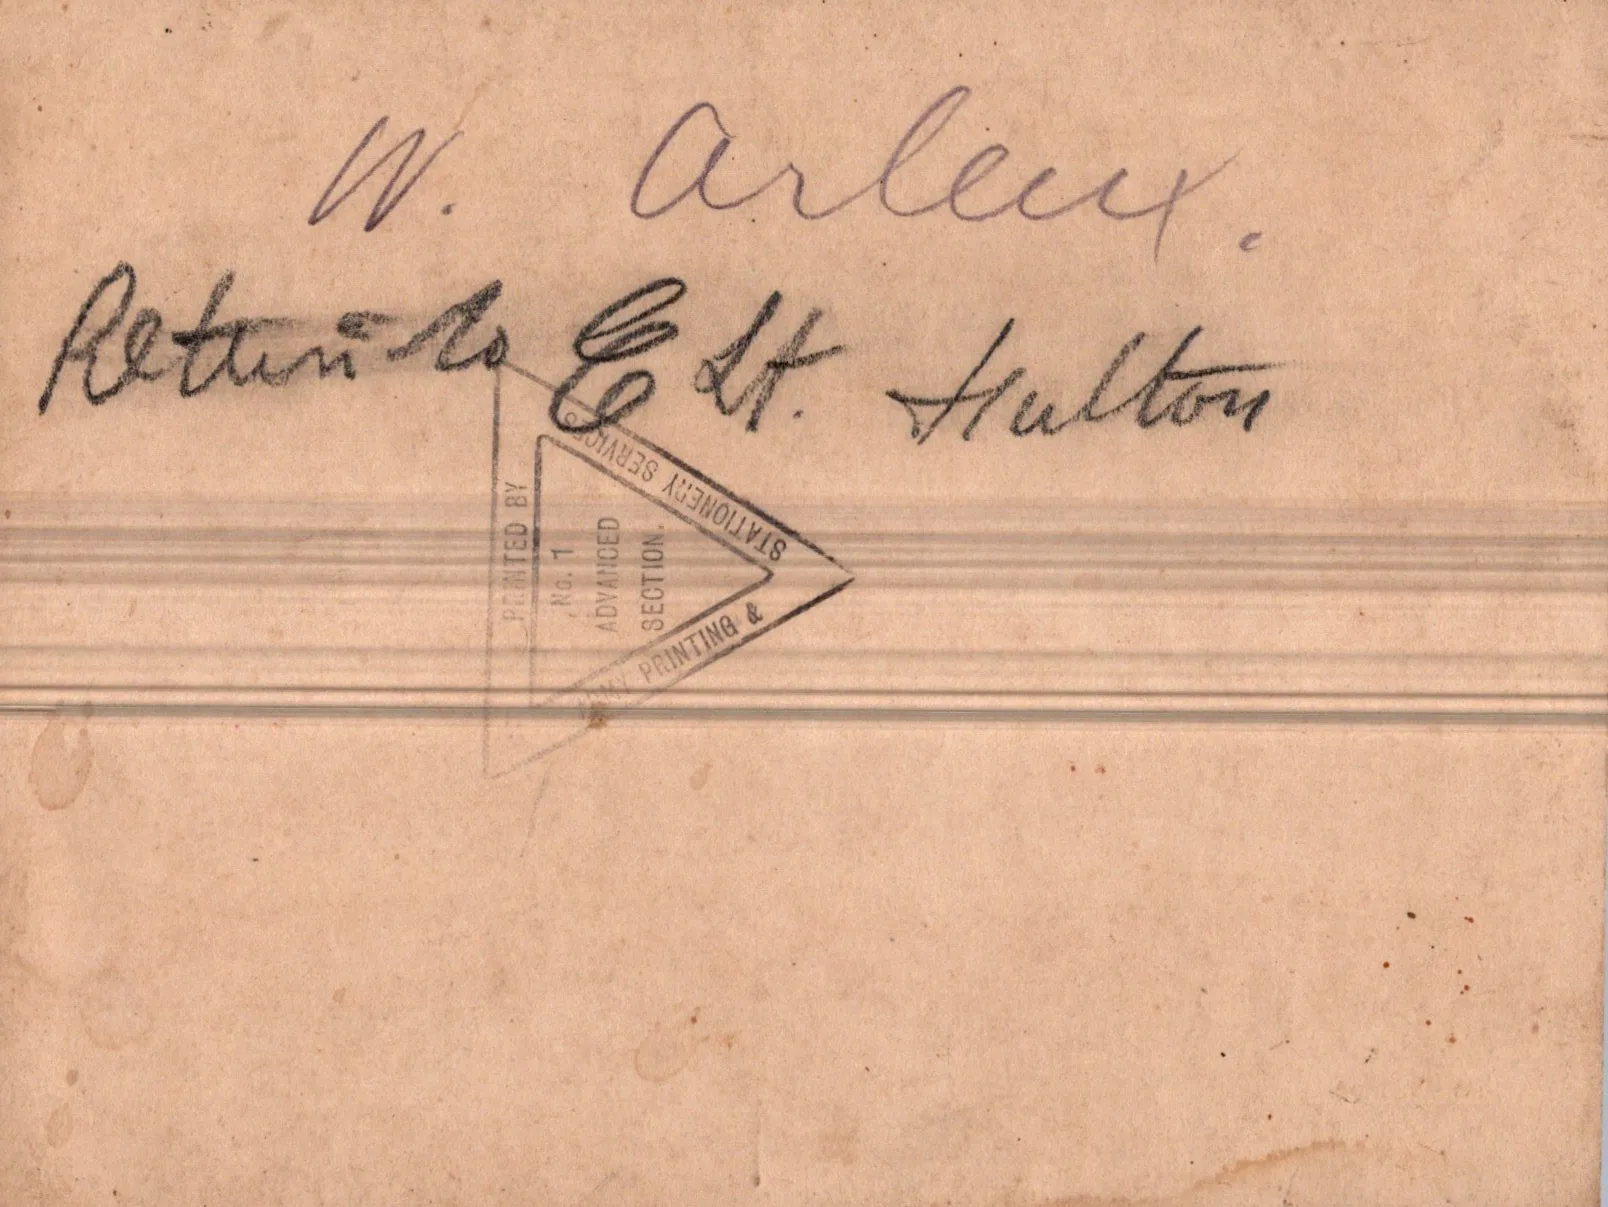 W. Arleux.
Return to E Lt. Hulton
PRINTED BY
ARMY PRINTING &
STATIONERY SERVICES
No. 1
ADVANCED
SECTION.